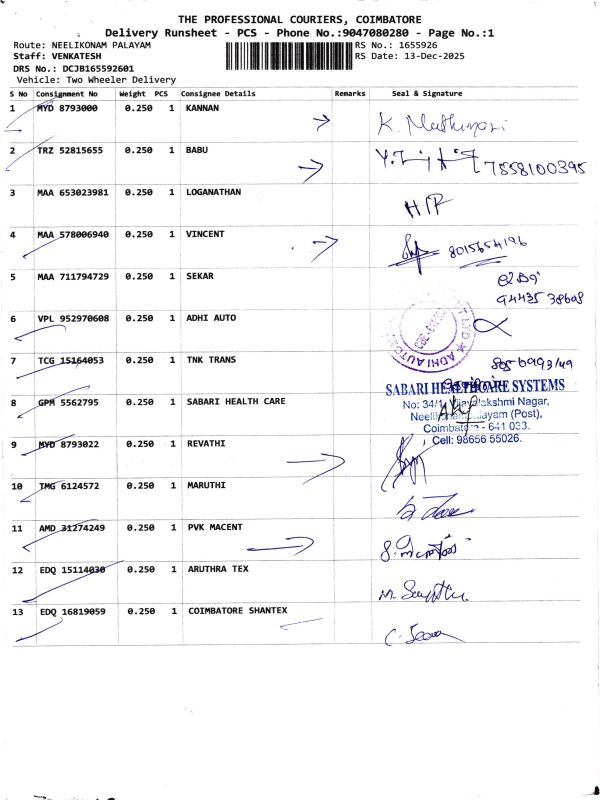 THE PROFESSIONAL COURIERS, COIMBATORE
Delivery Runsheet - PCS - Phone No.:9047080280 - Page No.:1
Route: NEELIKONAM PALAYAM RS No.: 1655926
Staff: VENKATESH RS Date: 13-Dec-2025
DRS No.: DCJB165592601
Vehicle: Two Wheeler Delivery
S No Consignment No Weight PCS Consignee Details Remarks Seal & Signature
1 MYD 8793000 0.250 1 KANNAN
2 TRZ 52815655 0.250 1 BABU 7558100395
3 MAA 653023981 0.250 1 LOGANATHAN
4 MAA 578006940 0.250 1 VINCENT 8015654196
5 MAA 711794729 0.250 1 SEKAR
94435 38608
6 VPL 952970608 0.250 1 ADHI AUTO
7 TCG 15164053 0.250 1 TNK TRANS
SABARI HEALTHCARE SYSTEMS
8 GPM 5562795 0.250 1 SABARI HEALTH CARE No: 34/1, Vijayalakshmi Nagar,
Neelikonampalayam (Post),
Coimbatore - 641 033.
Cell: 98656 55026.
9 MYD 8793022 0.250 1 REVATHI
10 TMG 6124572 0.250 1 MARUTHI
11 AMD 31274249 0.250 1 PVK MACENT
12 EDQ 15114030 0.250 1 ARUTHRA TEX
13 EDQ 16819059 0.250 1 COIMBATORE SHANTEX